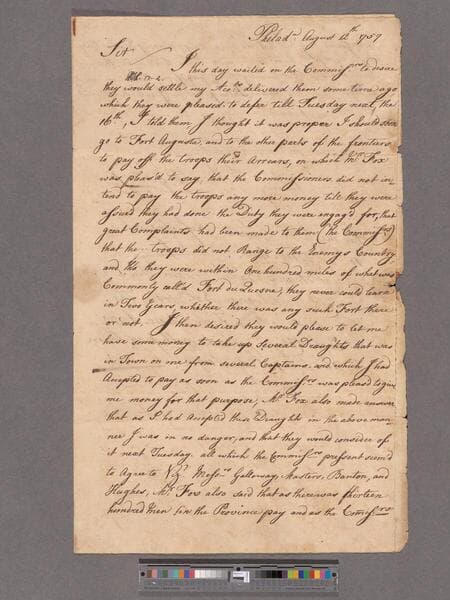 Philad.ª August 12th 1757
Sir
I this day waited on the Commiss.rs to desire
they would settle my Acc.ts delivered them some time ago
which they were pleased to defer till Tuesday next, the
16th, I told them I thought it was proper I should
go to Fort Augusta, and to the other parts of the frontiers
to pay off the troops their Arrears, on which Mr. Fox
was pleas'd to say, that the Commissioners did not in
tend to pay the troops any more money till they were
assured they had done the Duty they were engag'd for, that
great Complaints had been made to them (the Commiss.rs)
that the troops did not Range to the Enemys Country
and tho they were within One hundred miles of what was
Commonly call'd Fort du Quesne, they never could learn
in Two Years, whether there was any such Fort there
or not. I then desired they would please to let me
have some money to take up several Draughts that was
in Town on me from several Captains, and which I had
Accepted to pay as soon as the Commiss.rs was pleased to give
me money for that purpose, Mr. Fox also made answer
that as I had Accepted these Draughts in the above man
ner I was in no danger, and that they would consider of
it next Tuesday, all which the Commiss.rs present seem'd
to Agree to Viz.t Mess.rs Galloway, Masters, Baynton, and
Hughes, Mr. Fox also said that as there was thirteen
hundred Men in the Province pay and as the Commiss.rs